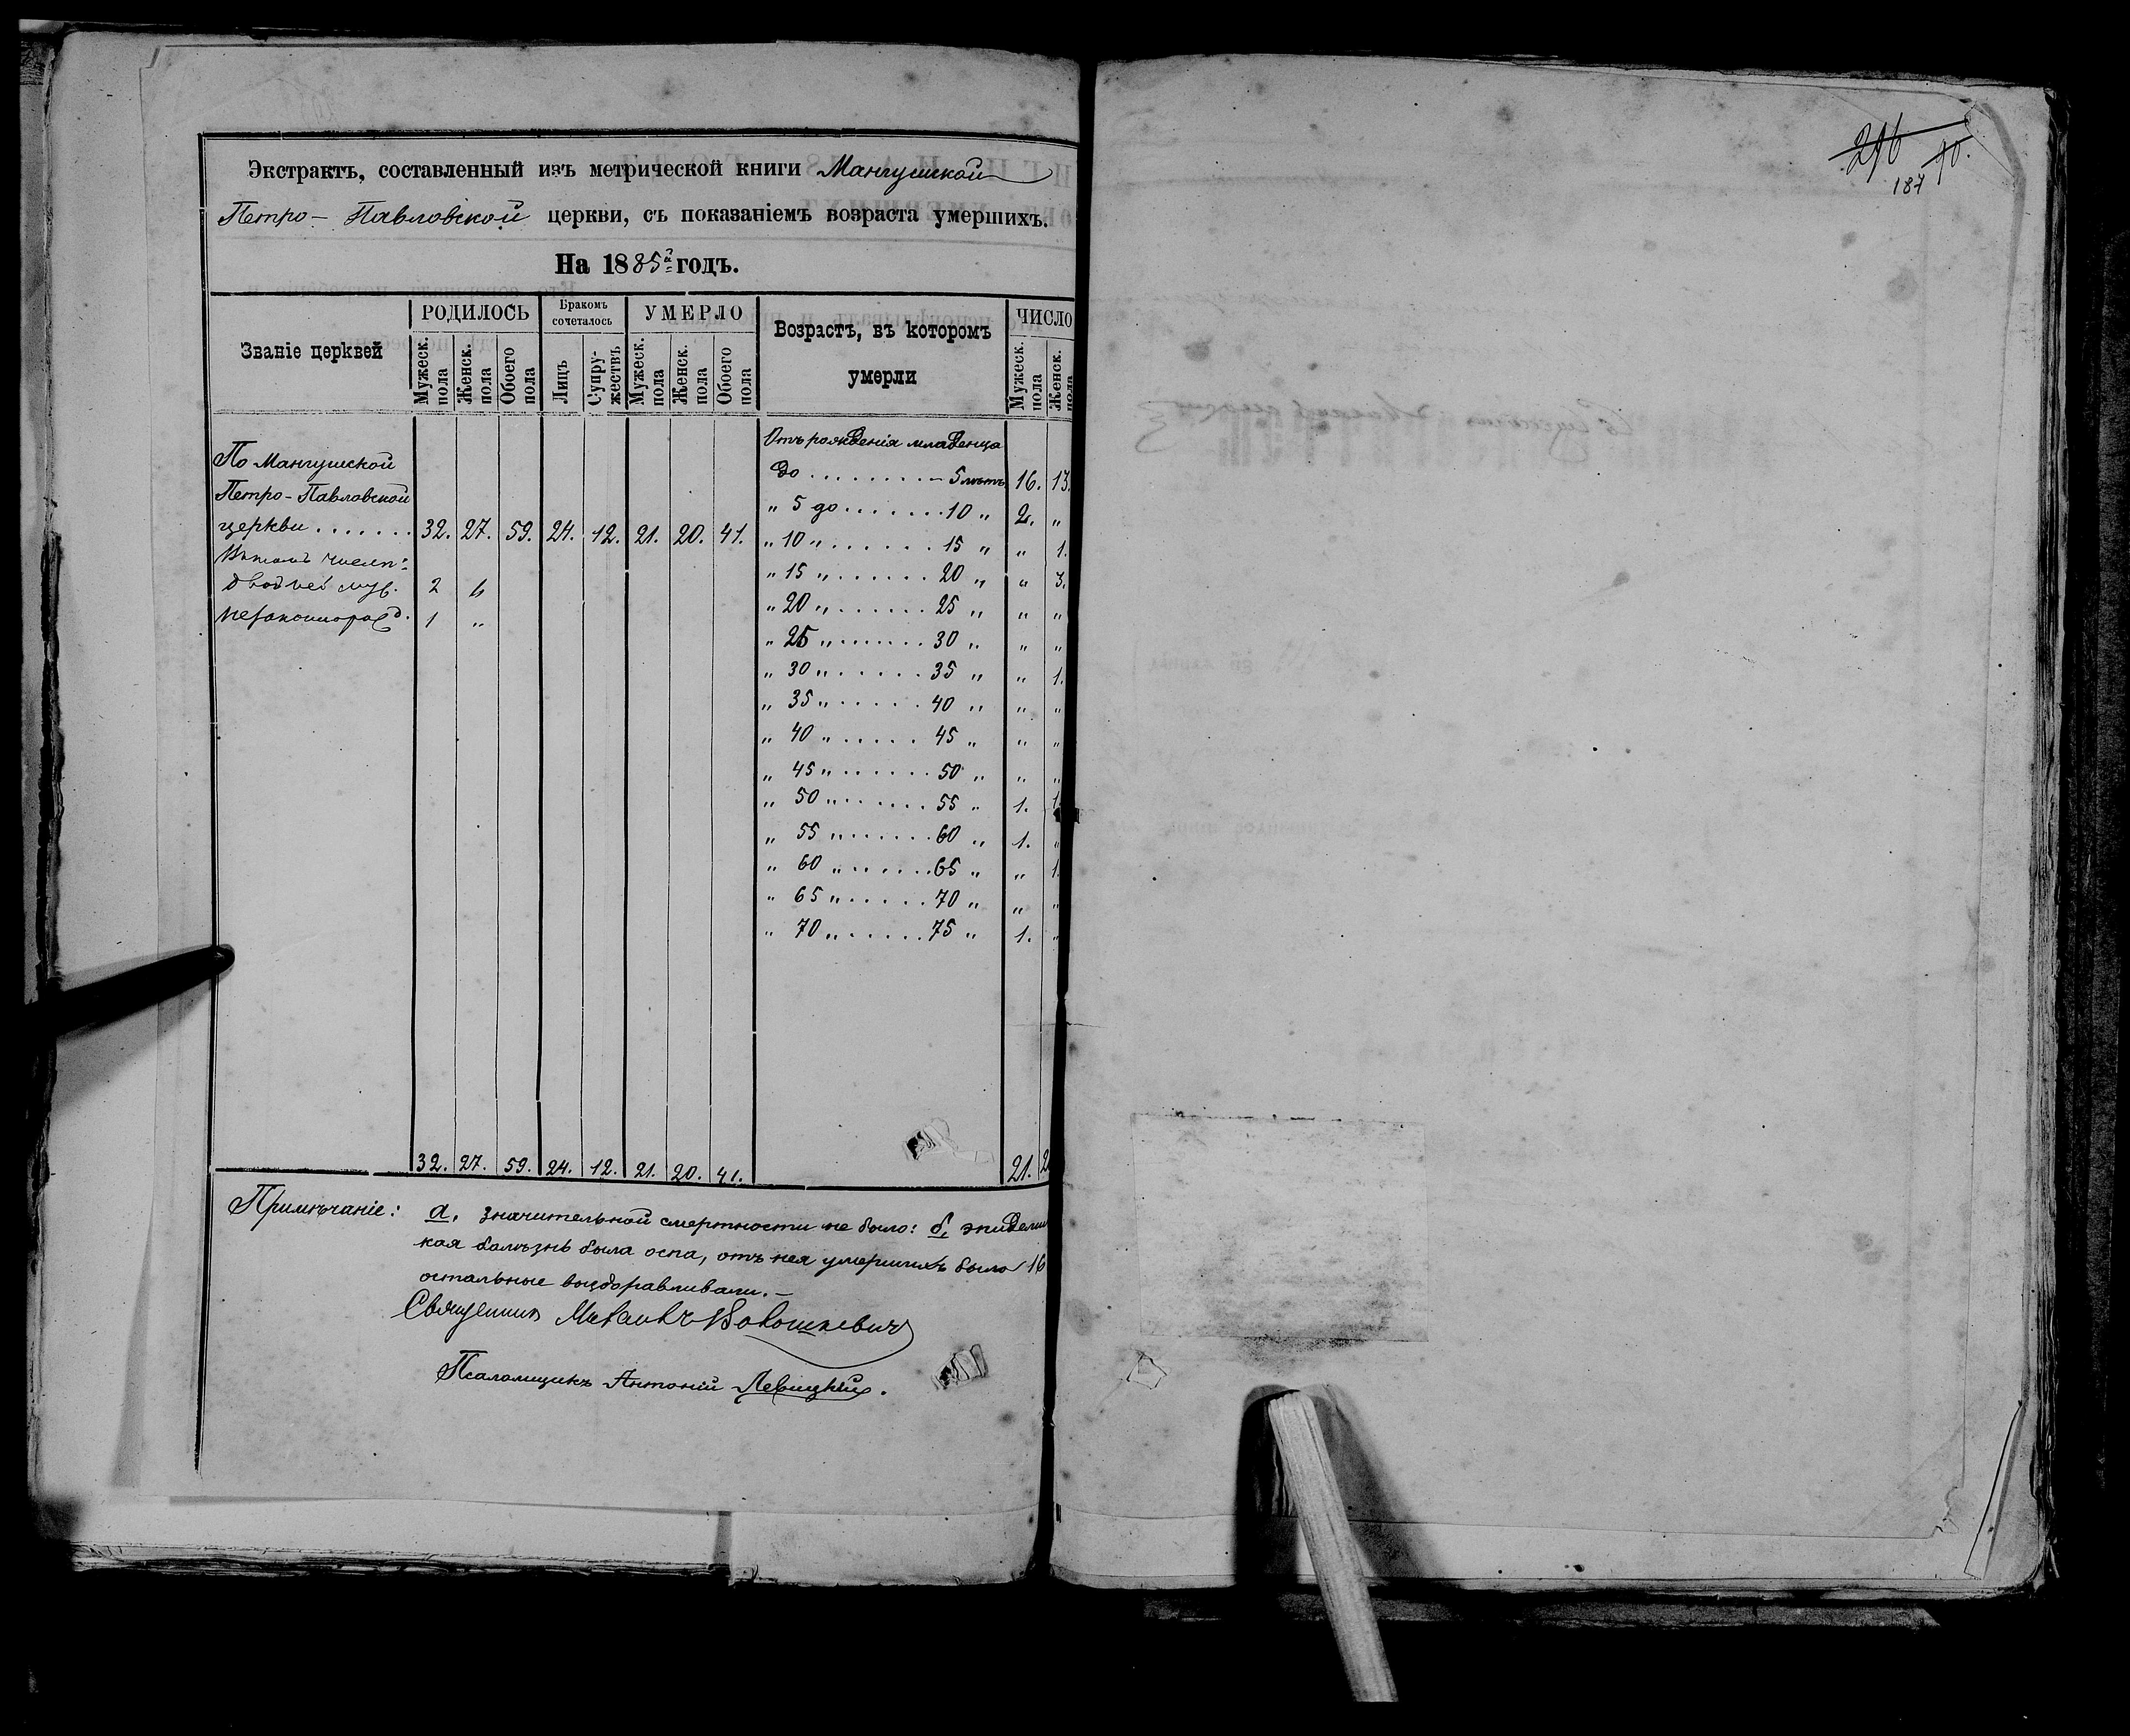 Экстрактъ, составленный изъ метрической книги Мангушской
Петро-Павловской церкви, съ показаніемъ возраста умершихъ.
На 1885й годъ.
Званіе церквей
РОДИЛОСЬ
Мужеск. пола
Женск. пола
Обоего пола
Бракомъ сочеталось
Лицъ
Супружествъ
УМЕРЛО
Мужеск. пола
Женск. пола
Обоего пола
Возрастъ, въ которомъ
умерли
ЧИСЛО
Мужеск. пола
Женск. пола
По Мангушской
Петро-Павловской
церкви . . . . . . . 32. 27. 59. 24. 12. 21. 20. 41.
Въ томъ числѣ:
двойней 2
незаконнорожд. 1 „
Отъ рожденія младенца
до . . . . . . . . – 5 лѣтъ 16. 13.
„ 5 до . . . . . . . 10 „ 2. „
„ 10 „ . . . . . . . 15 „ „ 1.
„ 15 „ . . . . . . 20 „ „ 3.
„ 20 „ . . . . . . . 25 „ „ „
„ 25 „ . . . . . . . 30 „ „ „
„ 30 „ . . . . . . 35 „ „ 1.
„ 35 „ . . . . . . 40 „ „ „
„ 40 „ . . . . . . 45 „ „ „
„ 45 „ . . . . . . 50 „ „ „
„ 50 „ . . . . . . . 55 „ 1. 1.
„ 55 „ . . . . . . . 60 „ 1. „
„ 60 „ . . . . . . . 65 „ „ 1
„ 65 „ . . . . . . 70 „ „ „
„ 70 „ . . . . . . . 75 „ 1. „
32. 27. 59. 24. 12. 21. 20. 41. 21. 2
Примѣчаніе: а, значительной смертности не было: б, эпидеми
кая болѣзнь была оспа, отъ нея умершихъ было 16
остальные выздоравливали. –
Священникъ
Псаломщикъ Антоній Левицкій.
296
90.
187